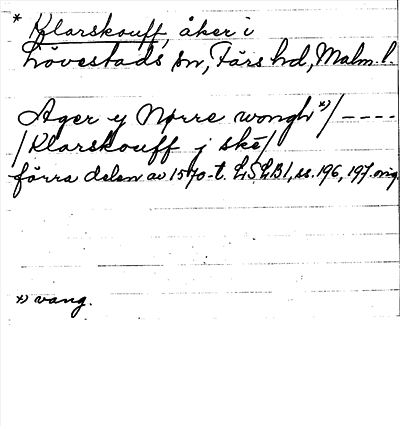 * Klarskouff, åker i
Lövestads sn, Färs hd, Malm. l.
Ager y Nørre wongh *)/ - - - -
/Klarskouff j skē/
förra delen av 1570-t. LSLB1, ss. 196, 197. orig.
*) vang.